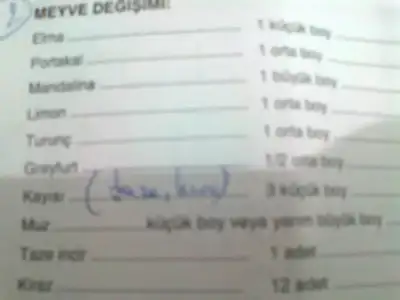 MEYVE DEĞİŞİMİ:
Elma 1 küçük boy
Portakal 1 orta boy
Mandalina 1 büyük boy
Limon 1 orta boy
Turunç 1 orta boy
Greyfurt 1/2 orta boy
Kayısı (taze, kuru) 3 küçük boy
Muz küçük boy veya yarım büyük boy
Taze incir 1 adet
Kiraz 12 adet